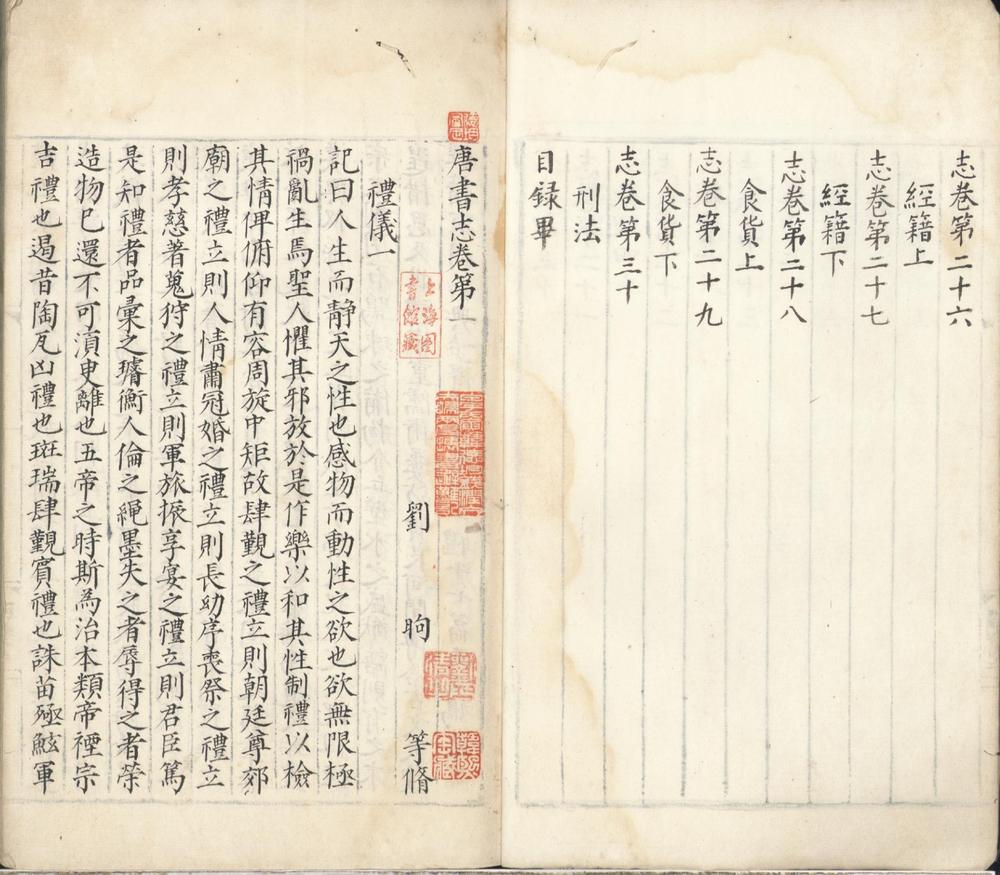 志卷第二十六
經籍上
志卷第二十七
經籍下
志卷第二十八
食貨上
志卷第二十九
食貨下
志卷第三十
刑法
目録畢
唐書志卷第一
劉昫等脩
上海圖書館藏
禮儀一
記曰人生而靜天之性也感物而動性之欲也欲無限極
禍亂生焉聖人懼其邪放於是作樂以和其性制禮以檢
其情俾俯仰有容周旋中矩故肆覲之禮立則朝廷尊郊
廟之禮立則人情肅冠婚之禮立則長幼序喪祭之禮立
則孝慈著蒐狩之禮立則軍旅振享宴之禮立則君臣篤
是知禮者品彙之璿衡人倫之繩墨失之者辱得之者榮
造物已還不可湏臾離也五帝之時斯為治本類帝禋宗
吉禮也遏昔陶瓦凶禮也班瑞肆觀賓禮也誅苗殛鮌軍